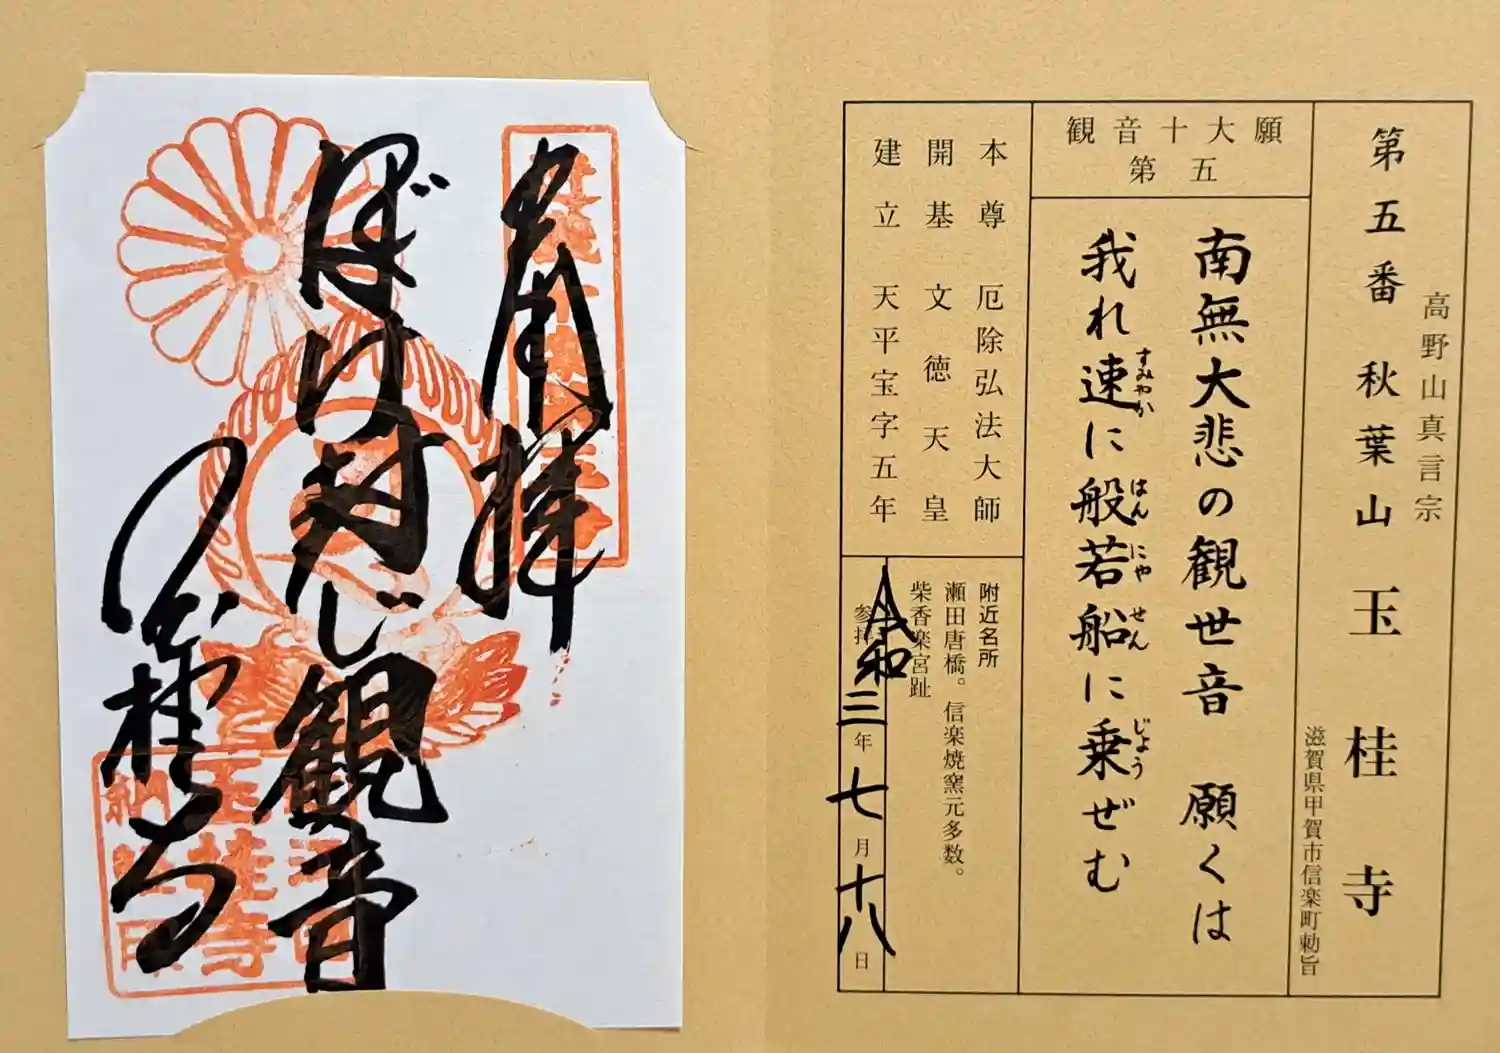 高野山真言宗
第五番 秋葉山 玉桂寺
滋賀県甲賀市信楽町勅旨
観音十大願
第五
南無大悲の観世音 願くは
我れ速に般若船に乗ぜむ
すみやか
はんにやせん
じよう
本尊 厄除弘法大師
開基 文徳天皇
建立 天平宝字五年
附近名所
瀬田唐橋。信楽焼窯元多数。
柴香楽宮趾
参拝 令和三年七月十八日
奉拝
ぼけ封じ観音
玉桂寺